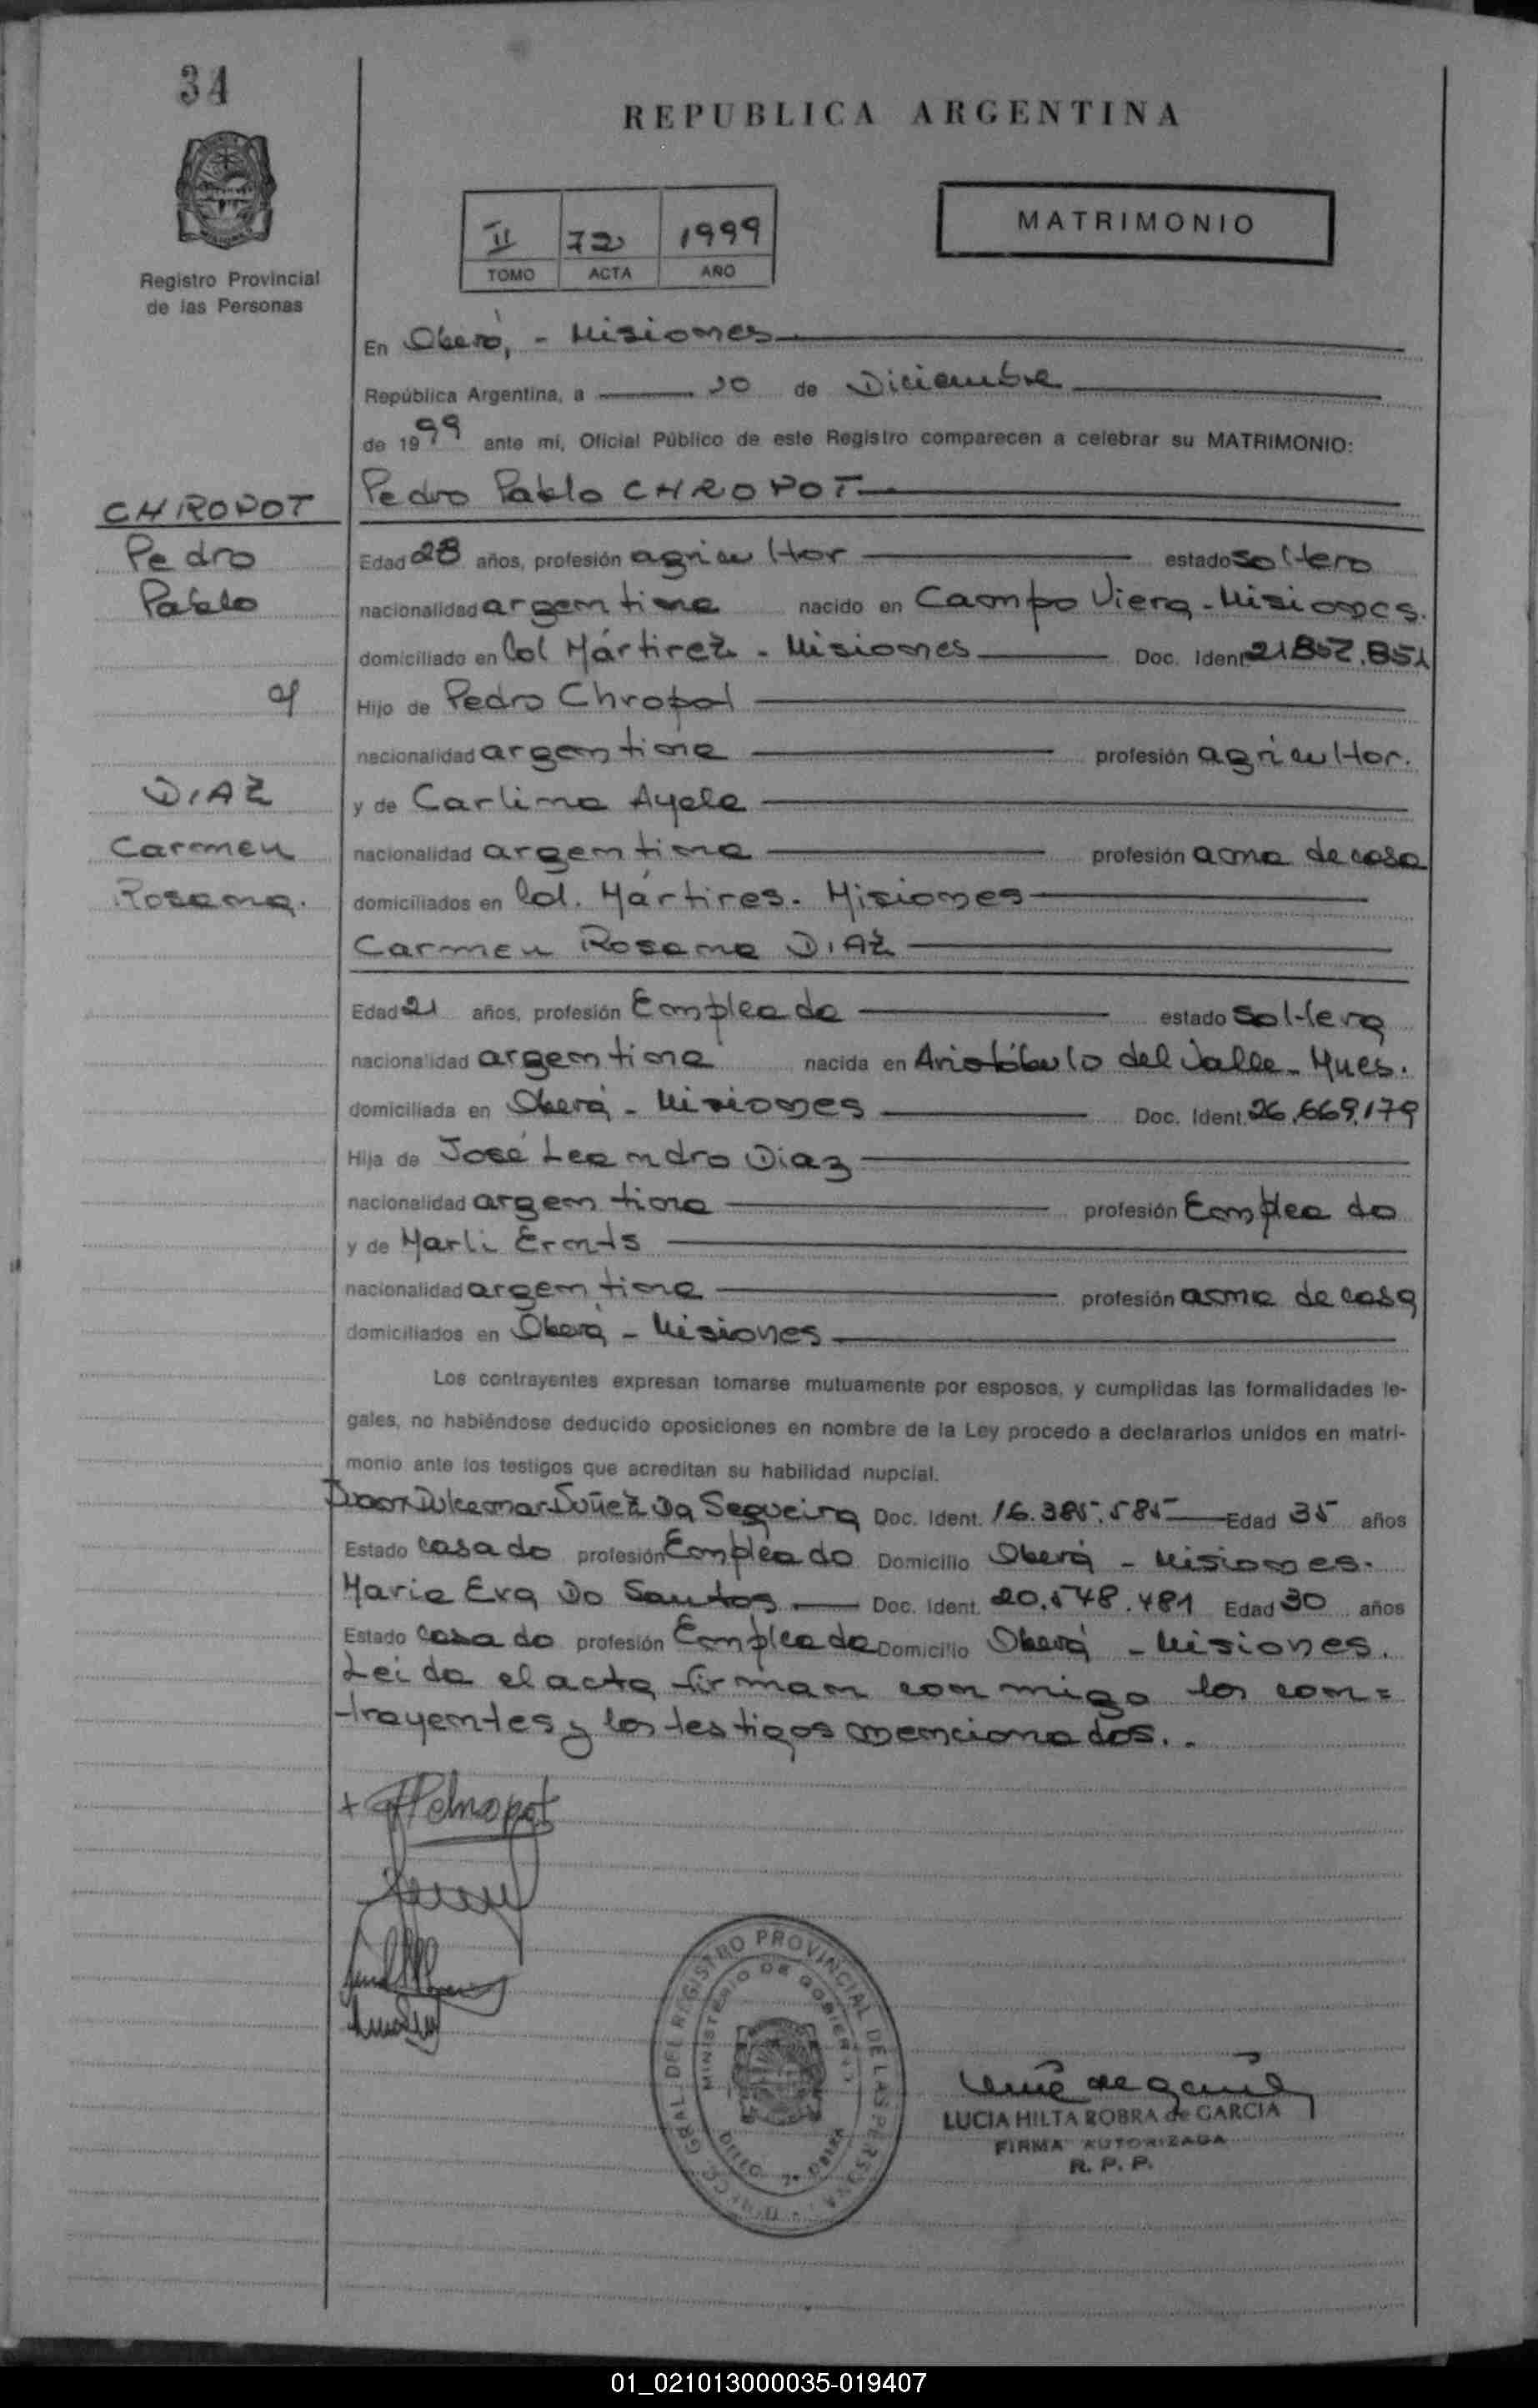 34
REPUBLICA ARGENTINA
II 72 1999
TOMO ACTA AÑO
MATRIMONIO
Registro Provincial
de las Personas
En Oberá, - Misiones
República Argentina, a de Diciembre
de 1999 ante mí, Oficial Público de este Registro comparecen a celebrar su MATRIMONIO:
Pedro Pablo CHROPOT
CHROPOT
Pedro
Pablo
c/
DIAZ
Carmen
Rosana.
Edad 28 años, profesión agricultor estado soltero
nacionalidad argentina nacido en Campo Viera - Misiones.
domiciliado en Col Mártirez - Misiones Doc. Ident.
Hijo de Pedro
nacionalidad argentina profesión agricultor.
y de Carlina Ayala
nacionalidad argentina profesión ama de casa
domiciliados en Col. Mártires. Misiones
Carmen Rosana DIAZ
Edad 21 años, profesión Empleada estado soltera
nacionalidad argentina nacida en Aristóbulo del Valle - Mnes.
domiciliada en Oberá - Misiones Doc. Ident. 26.669.179
Hija de José Leandro Diaz
nacionalidad argentina profesión Empleado
y de Marli Ernts
nacionalidad argentina profesión ama de casa
domiciliados en Oberá - Misiones
Los contrayentes expresan tomarse mutuamente por esposos, y cumplidas las formalidades le-
gales, no habiéndose deducido oposiciones en nombre de la Ley procedo a declararlos unidos en matri-
monio ante los testigos que acreditan su habilidad nupcial.
Da Segueira Doc. Ident. 16.385.585 Edad 35 años
Estado casado profesión Empleado Domicilio Oberá - Misiones.
Maria Eva Do Santos Doc. Ident. 20.548.481 Edad 30 años
Estado casado profesión Empleada Domicilio Oberá - Misiones.
Leida el acta firman conmigo los con=
trayentes y los testigos mencionados..
DIRECC. GRAL. DEL REGISTRO PROVINCIAL DE LAS PERSONAS
MINISTERIO DE GOBIERNO
DELEG. 2ª OBERA
LUCIA HILTA ROBRA de GARCIA
FIRMA AUTORIZADA
R. P. P.
01_021013000035-019407